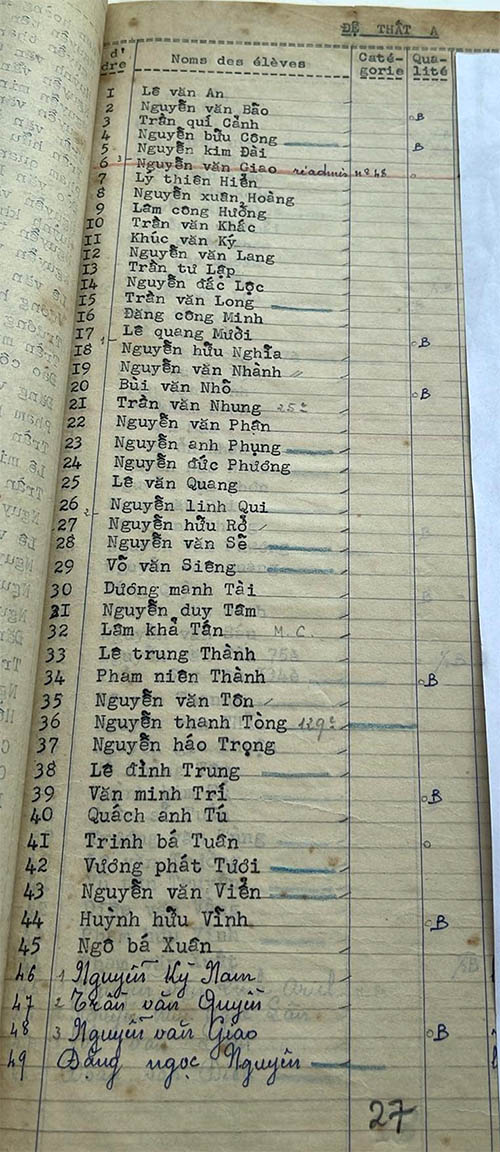 ĐỆ THẤT A
d'
dre Noms des élèves Caté-gorie Qua-lité
1 Lê văn An
2 Nguyễn văn Bão
3 Trần quí Cảnh B
4 Nguyễn bửu Công
5 Nguyễn kim Đài B
6 3 Nguyễn văn Giao réadmis nº 48
7 Lý thiên Hiển
8 Nguyễn xuân Hoàng
9 Lâm công Hưởng
10 Trần văn Khắc
11 Khúc văn Ký
12 Nguyễn văn Lang
13 Trần tư Lập
14 Nguyễn đắc Lộc
15 Trần văn Long
16 Đăng công Minh
17 1 Lê quang Mười B
18 Nguyễn hữu Nghĩa
19 Nguyễn văn Nhành
20 Bùi văn Nhỏ B
21 Trần văn Nhung 25è
22 Nguyễn văn Phận
23 Nguyễn anh Phụng
24 Nguyễn đức Phương
25 Lê văn Quang
26 2 Nguyễn linh Qui
27 Nguyễn hữu Rỡ
28 Nguyễn văn Sẽ
29 Võ văn Siêng
30 Dương mạnh Tài
31 Nguyễn duy Tâm
32 Lâm khả Tấn M.C.
33 Lê trung Thành
34 Phạm niên Thành B
35 Nguyễn văn Tôn
36 Nguyễn thanh Tòng 129è
37 Nguyễn háo Trọng
38 Lê đình Trung
39 Văn minh Trí B
40 Quách anh Tú
41 Trinh bá Tuân
42 Vương phát Tươi
43 Nguyễn văn Viển
44 Huỳnh hữu Vĩnh B
45 Ngô bá Xuân
46 1 Nguyễn Kỳ Nam
47 2 Trần văn Quyền
48 3 Nguyễn văn Giao B
49 Đặng ngọc Nguyên
27